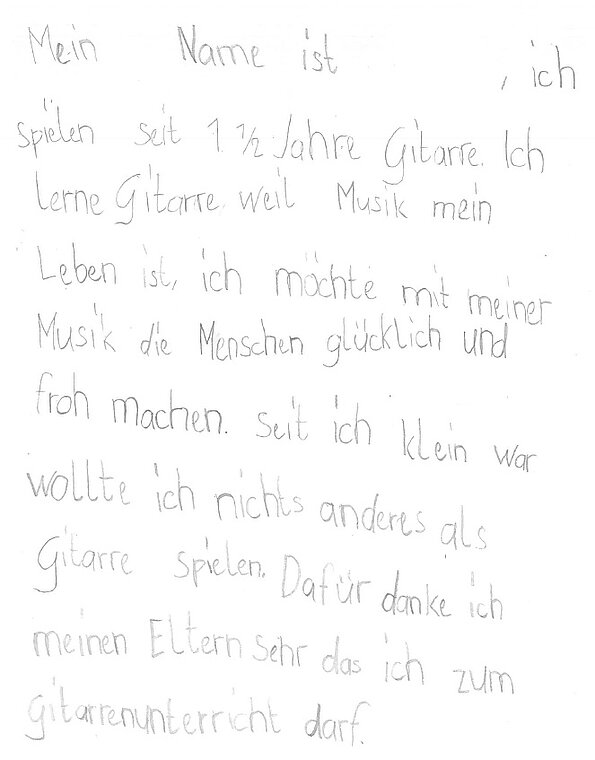 Mein Name ist , ich
spielen seit 1 1/2 Jahre Gitarre. Ich
lerne Gitarre weil Musik mein
Leben ist, ich möchte mit meiner
Musik die Menschen glücklich und
froh machen. Seit ich klein war
wollte ich nichts anderes als
Gitarre spielen. Dafür danke ich
meinen Eltern sehr das ich zum
gitarrenunterricht darf.